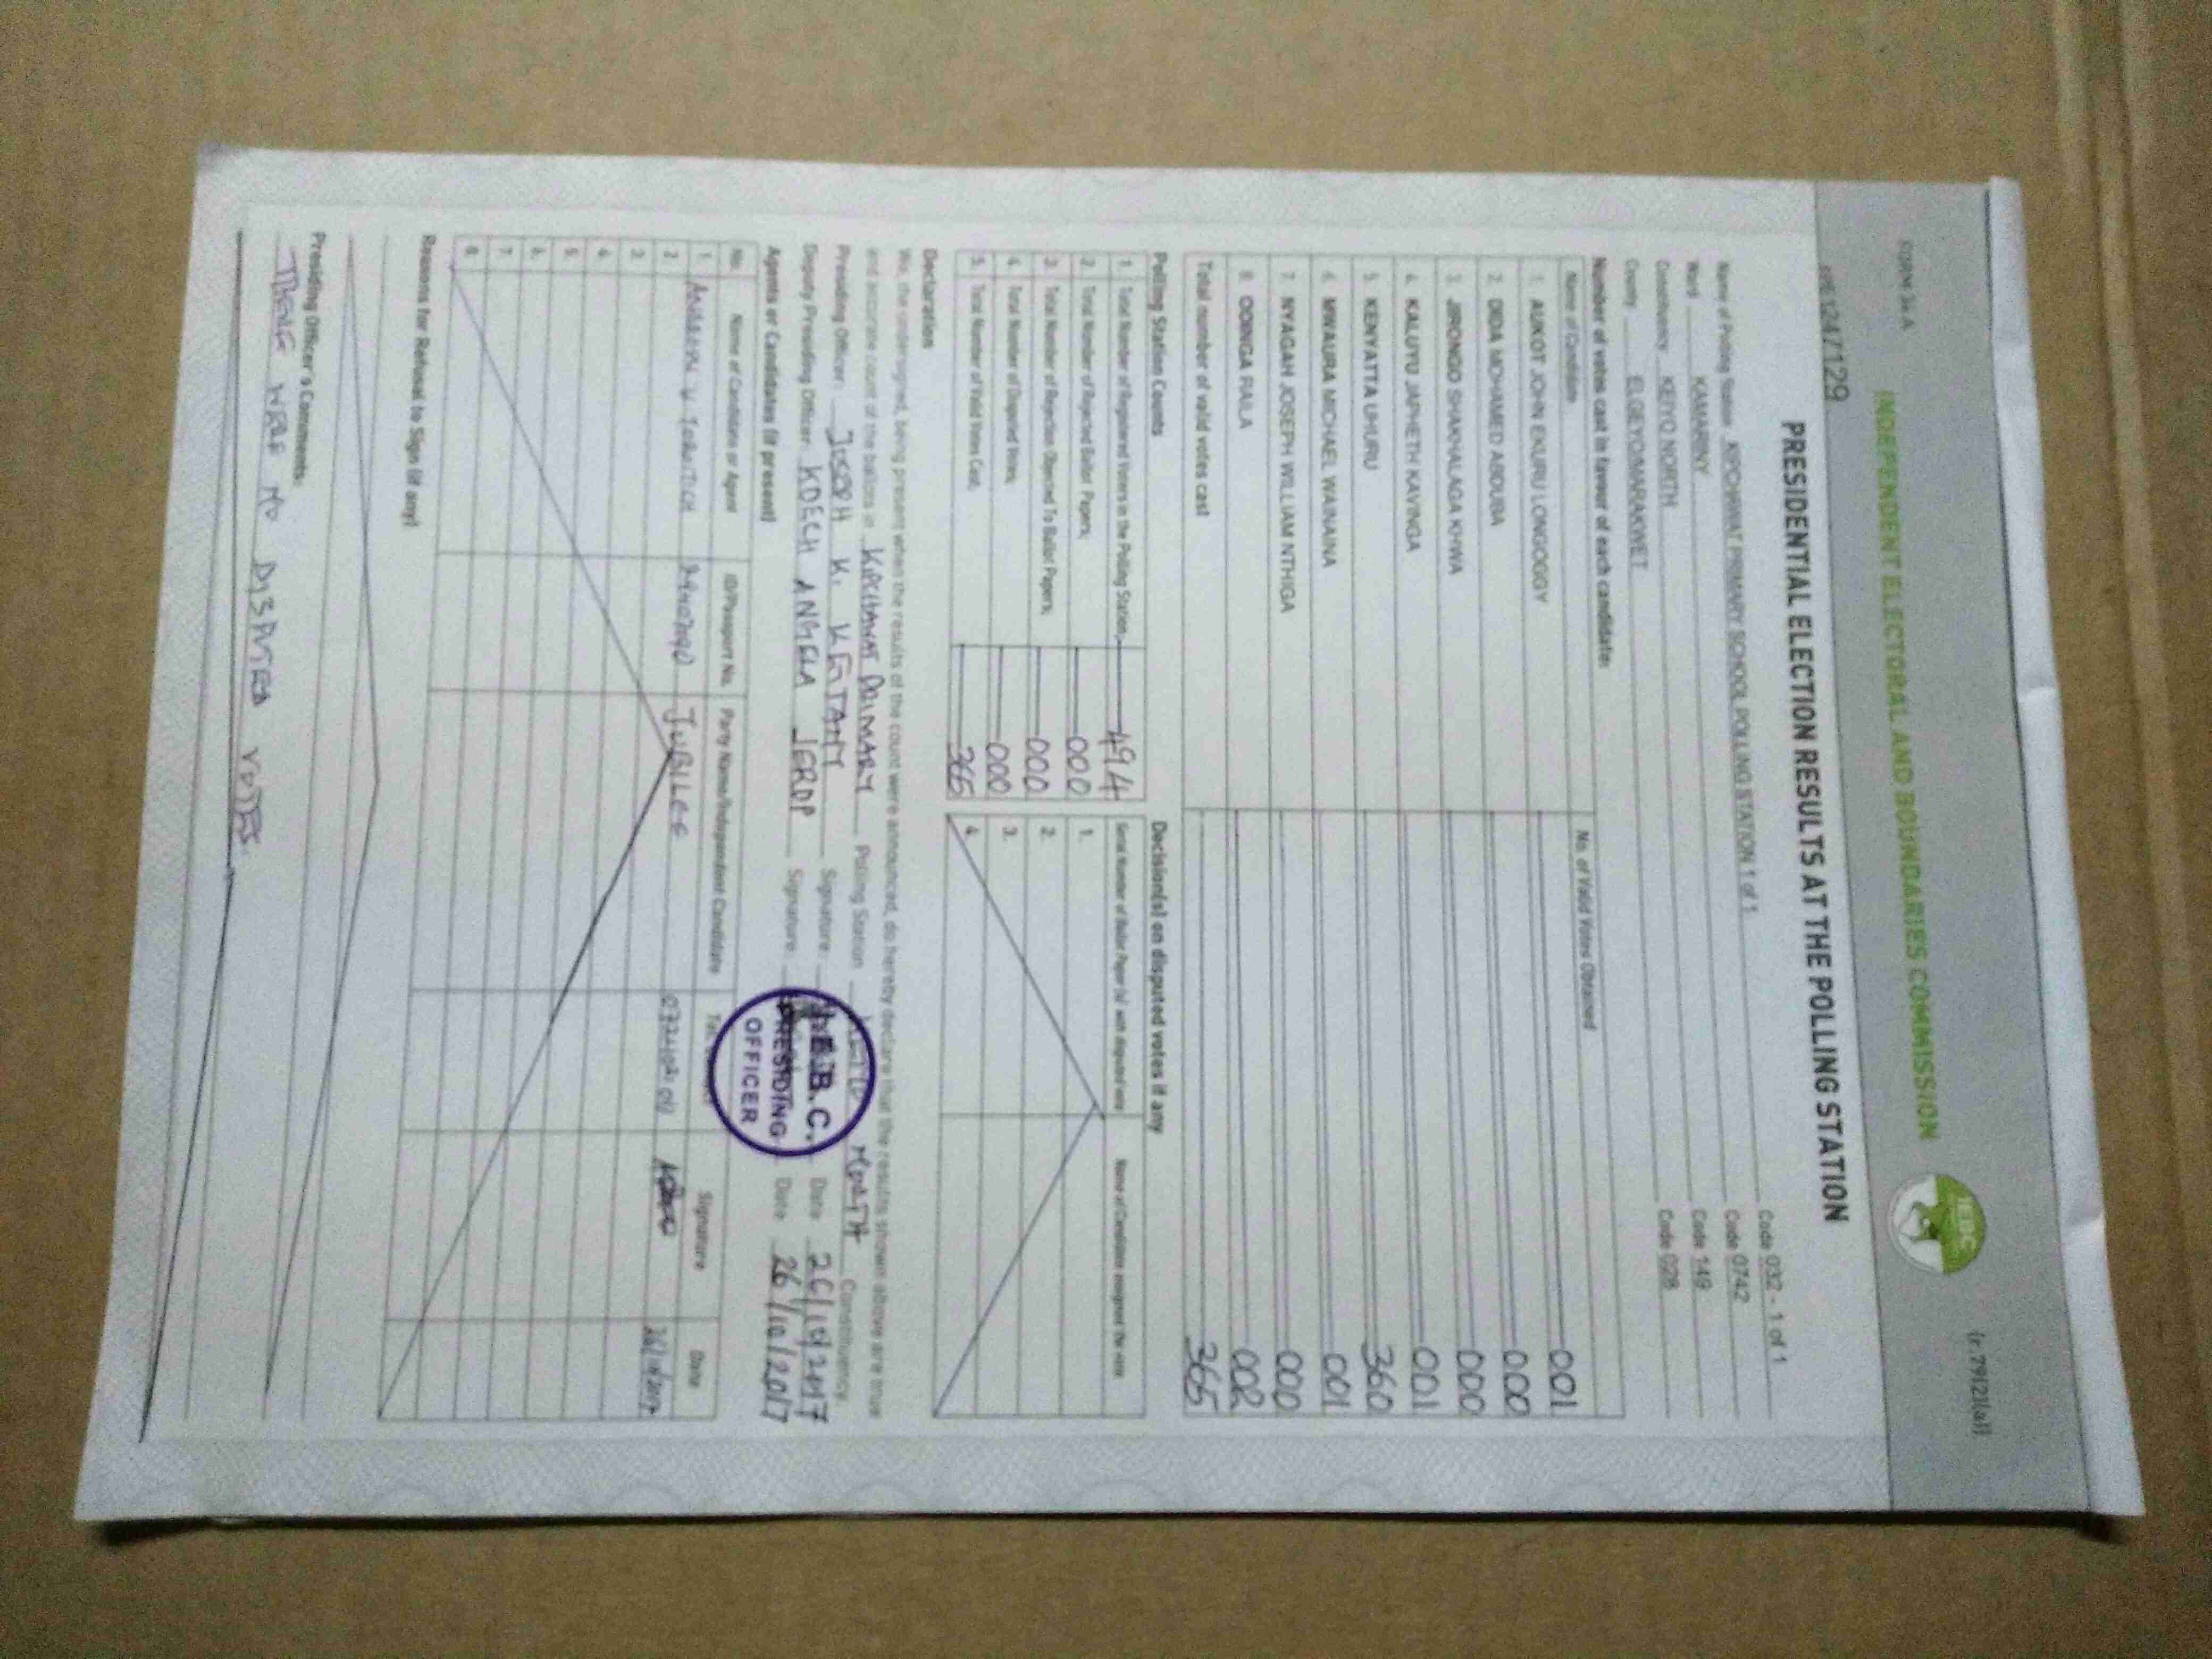 FORM 34 A
(r.79(2)(a))
INDEPENDENT ELECTORAL AND BOUNDARIES COMMISSION
IEBC
1247129
PRESIDENTIAL ELECTION RESULTS AT THE POLLING STATION
Name of Polling Station KIPCHAWAT PRIMARY SCHOOL POLLING STATION 1 of 1 Code 032 - 1 of 1
Ward KAMARINY Code 0742
Constituency KEIYO NORTH Code 149
County ELGEYO/MARAKWET Code 028
Number of votes cast in favour of each candidate:
Name of Candidate No. of Valid Votes Obtained
1. AUKOT JOHN EKURU LONGOGGY 001
2. DIDA MOHAMED ABDUBA 000
3. JIRONGO SHAKHALAGA KHWA 000
4. KALUYU JAPHETH KAVINGA 001
5. KENYATTA UHURU 360
6. MWAURA MICHAEL WAINAINA 001
7. NYAGAH JOSEPH WILLIAM NTHIGA 000
8. ODINGA RAILA 002
Total number of valid votes cast 365
Polling Station Counts
1. Total Number of Registered Voters in the Polling Station; 494
2. Total Number of Rejected Ballot Papers; 000
3. Total Number of Rejection Objected To Ballot Papers; 000
4. Total Number of Disputed Votes; 000
5. Total Number of Valid Votes Cast; 365
Decision(s) on disputed votes if any
Serial Number of Ballot Paper (s) with disputed vote Name of Candidate assigned the vote
1.
2.
3.
4.
Declaration
We, the undersigned, being present when the results of the count were announced, do hereby declare that the results shown above are true
and accurate count of the ballots in KIPCHAWAT PRIMARY Polling Station KEIYO NORTH Constituency
Presiding Officer: JOSEPH K. KEITANY Signature: Date 26/10/2017
Deputy Presiding Officer: KOECH ANGELA JEROP Signature: Date 26/10/2017
I.E.B.C.
PRESIDING
OFFICER
Agents or Candidates (if present)
No. Name of Candidate or Agent ID/Passport No. Party Name/Independent Candidate Signature Date
1. JUBILEE
2.
3.
4.
5.
6.
7.
8.
Reasons for Refusal to Sign (if any)
Presiding Officer's Comments:
THERE WERE NO DISPUTED VOTES.